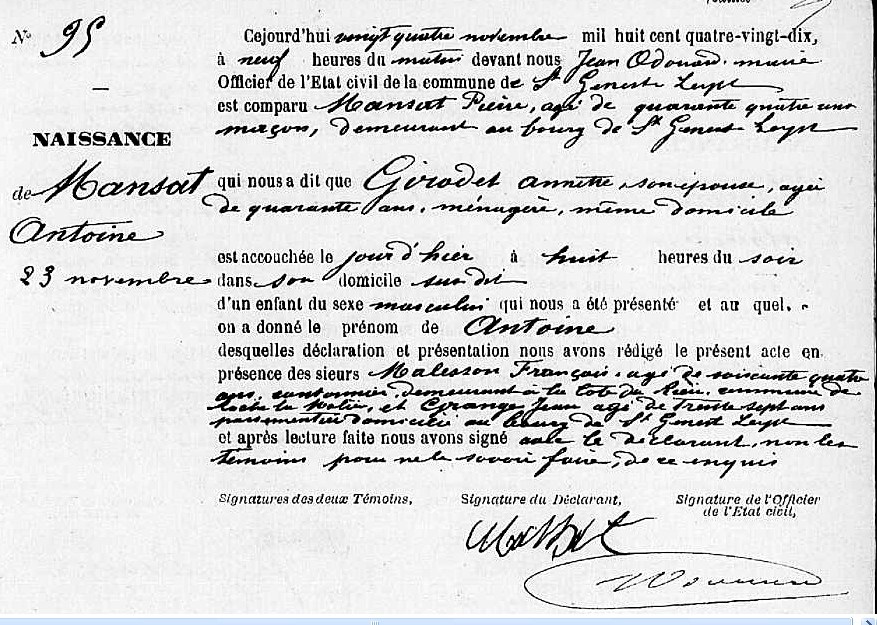 No 95
NAISSANCE
de Mansat
Antoine
23 novembre
Cejourd'hui vingt quatre novembre mil huit cent quatre-vingt-dix,
à neuf heures du matin devant nous Jean Odouard, maire
Officier de l'Etat civil de la commune de St Genest Lerpt
est comparu Mansat Pierre, agé de quarante quatre ans
maçon, demeurant au bourg de St Genest Lerpt
qui nous a dit que Girodet annette, son épouse, agée
de quarante ans, ménagère, même domicile
est accouchée le jour d'hier à huit heures du soir
dans son domicile susdit
d'un enfant du sexe masculin qui nous a été présenté et au quel
on a donné le prénom de Antoine
desquelles déclaration et présentation nous avons rédigé le présent acte en
présence des sieurs Malesson François, agé de soixante quatre
ans, cantonnier, demeurant à la côte du commune de
Roche la Molière, et Granger Jean agé de trente sept ans
passementier domicilié au bourg de St Genest Lerpt
et après lecture faite nous avons signé avec le déclarant, non les
témoins pour ne le savoir faire, de ce enquis
Signatures des deux Témoins, Signature du Déclarant, Signature de l'Officier
de l'Etat civil,